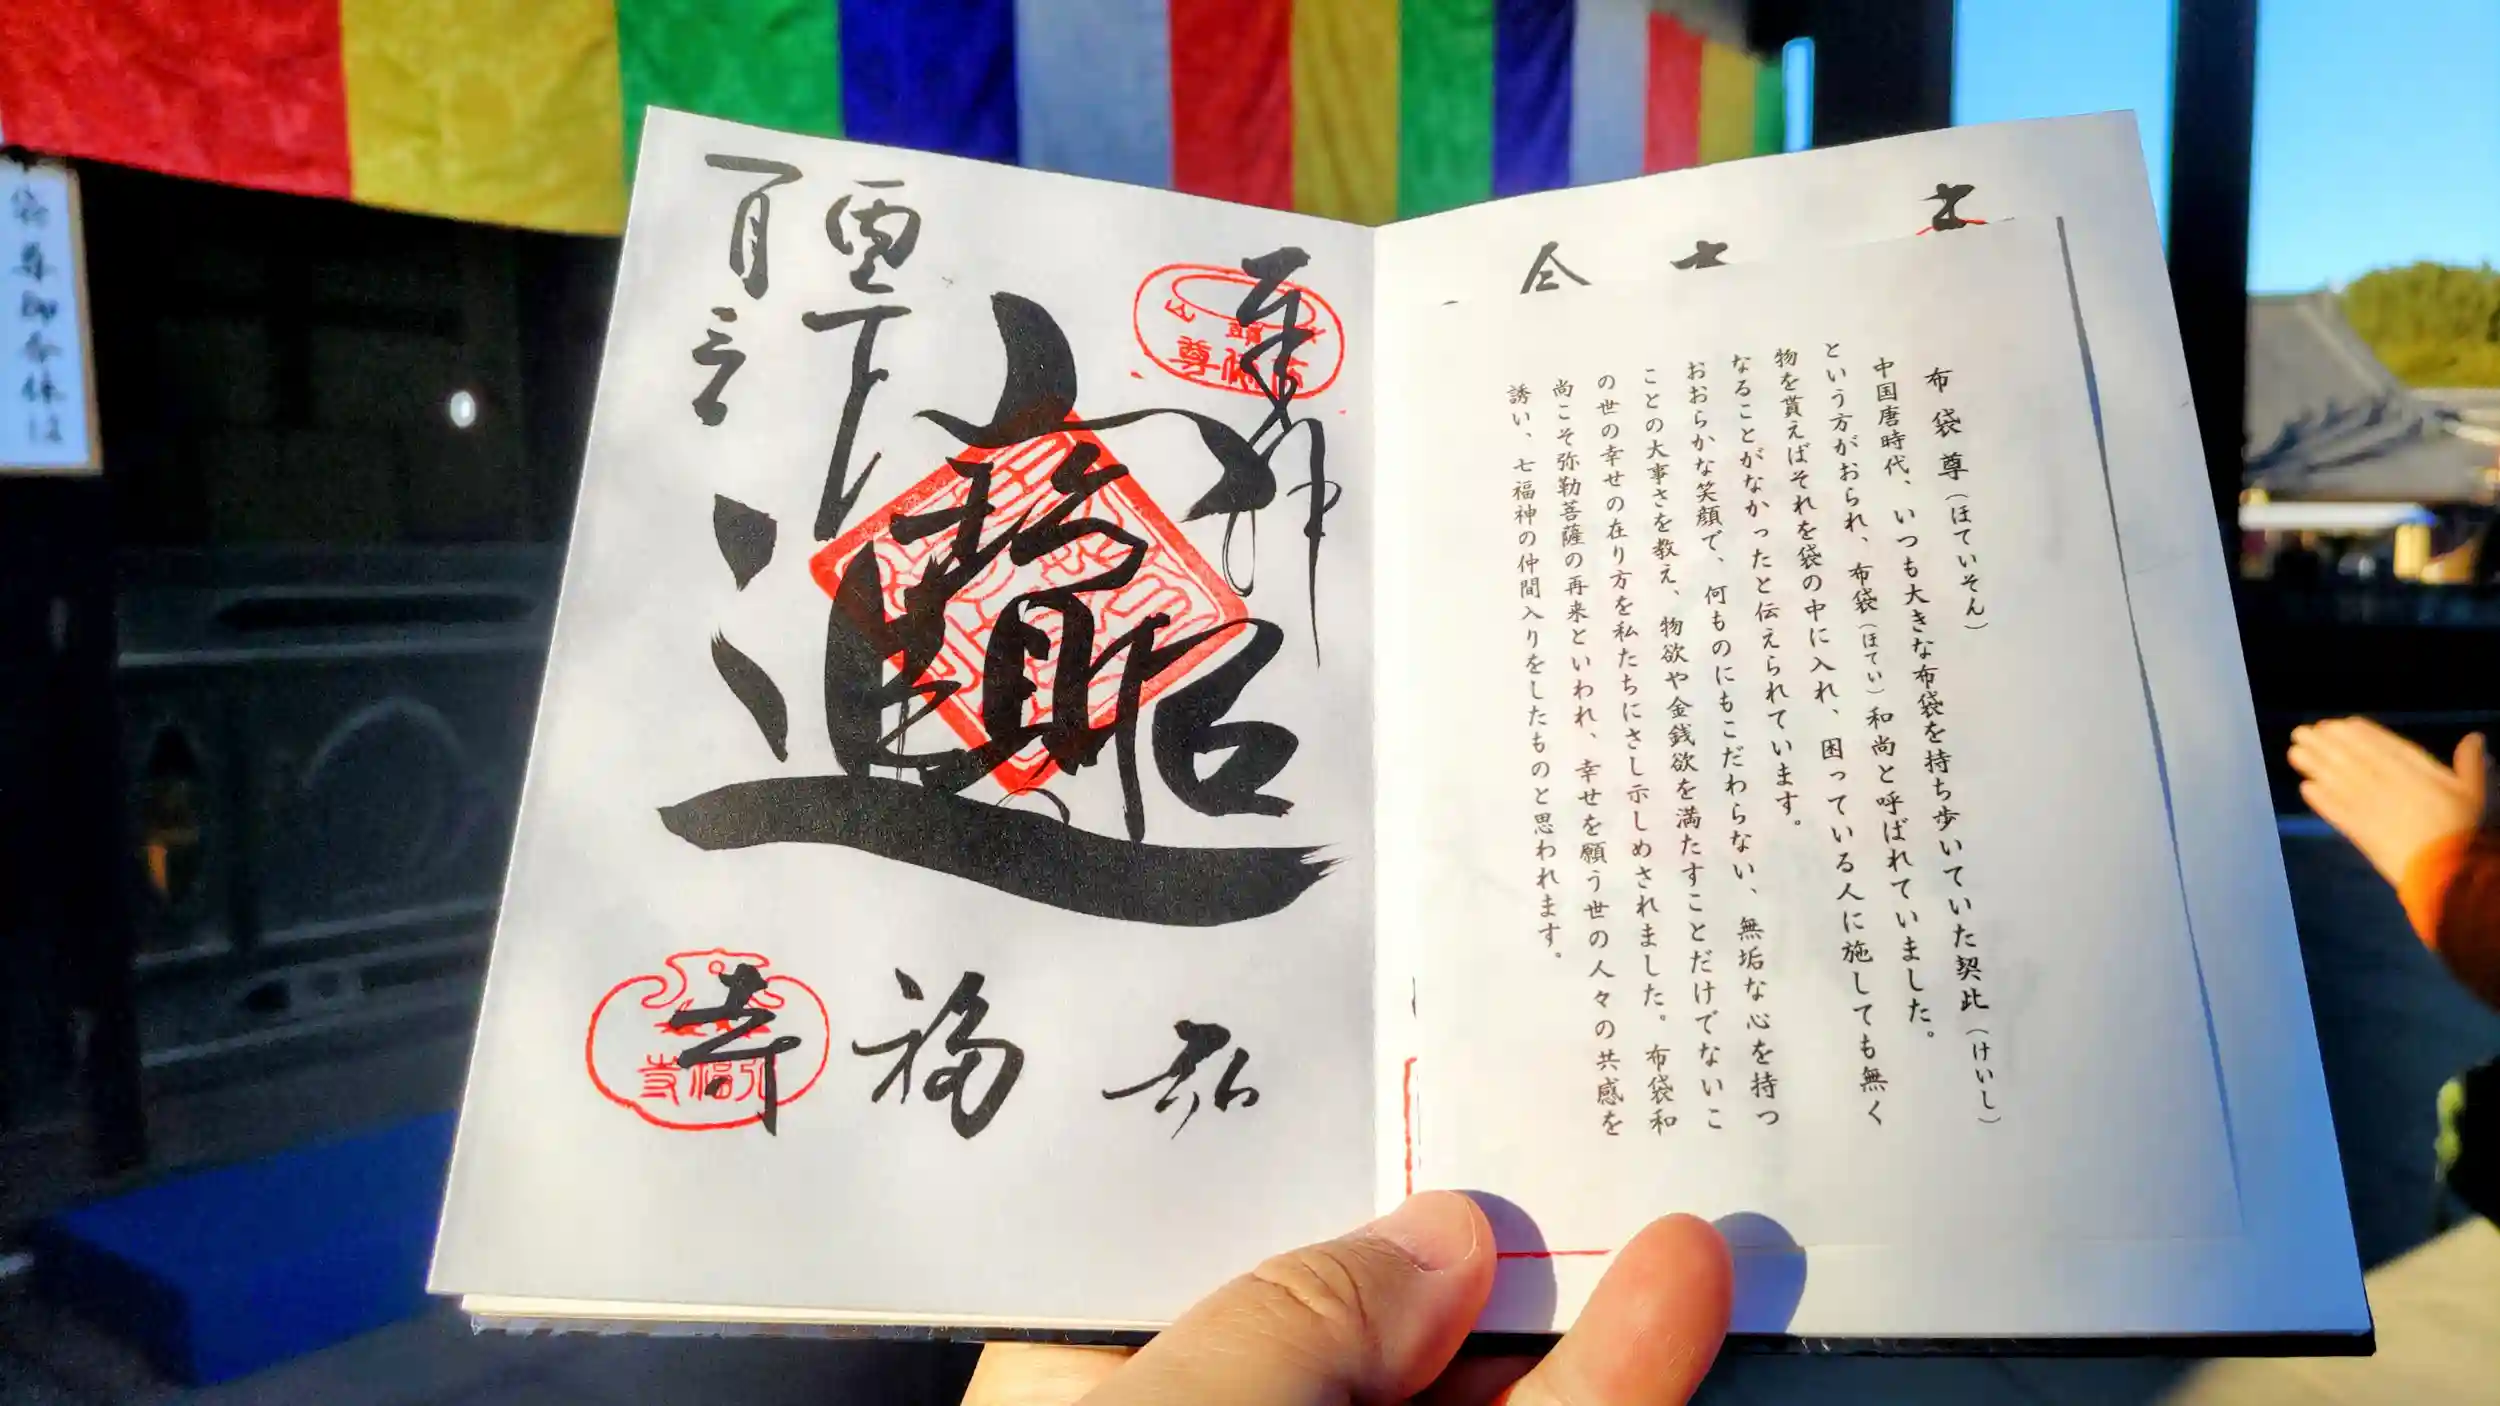 布袋尊(ほていそん)
中国唐時代、いつも大きな布袋を持ち歩いていた契此(けいし)
という方がおられ、布袋(ほてい)和尚と呼ばれていました。
物を貰えばそれを袋の中に入れ、困っている人に施しても無く
なることがなかったと伝えられています。
おおらかな笑顔で、何ものにもこだわらない、無垢な心を持つ
ことの大事さを教え、物欲や金銭欲を満たすことだけでないこ
の世の幸せの在り方を私たちにさし示しめされました。布袋和
尚こそ弥勒菩薩の再来といわれ、幸せを願う世の人々の共感を
誘い、七福神の仲間入りをしたものと思われます。
奉拝
弘福寺
弘福寺
一月三日
袋尊御本体は